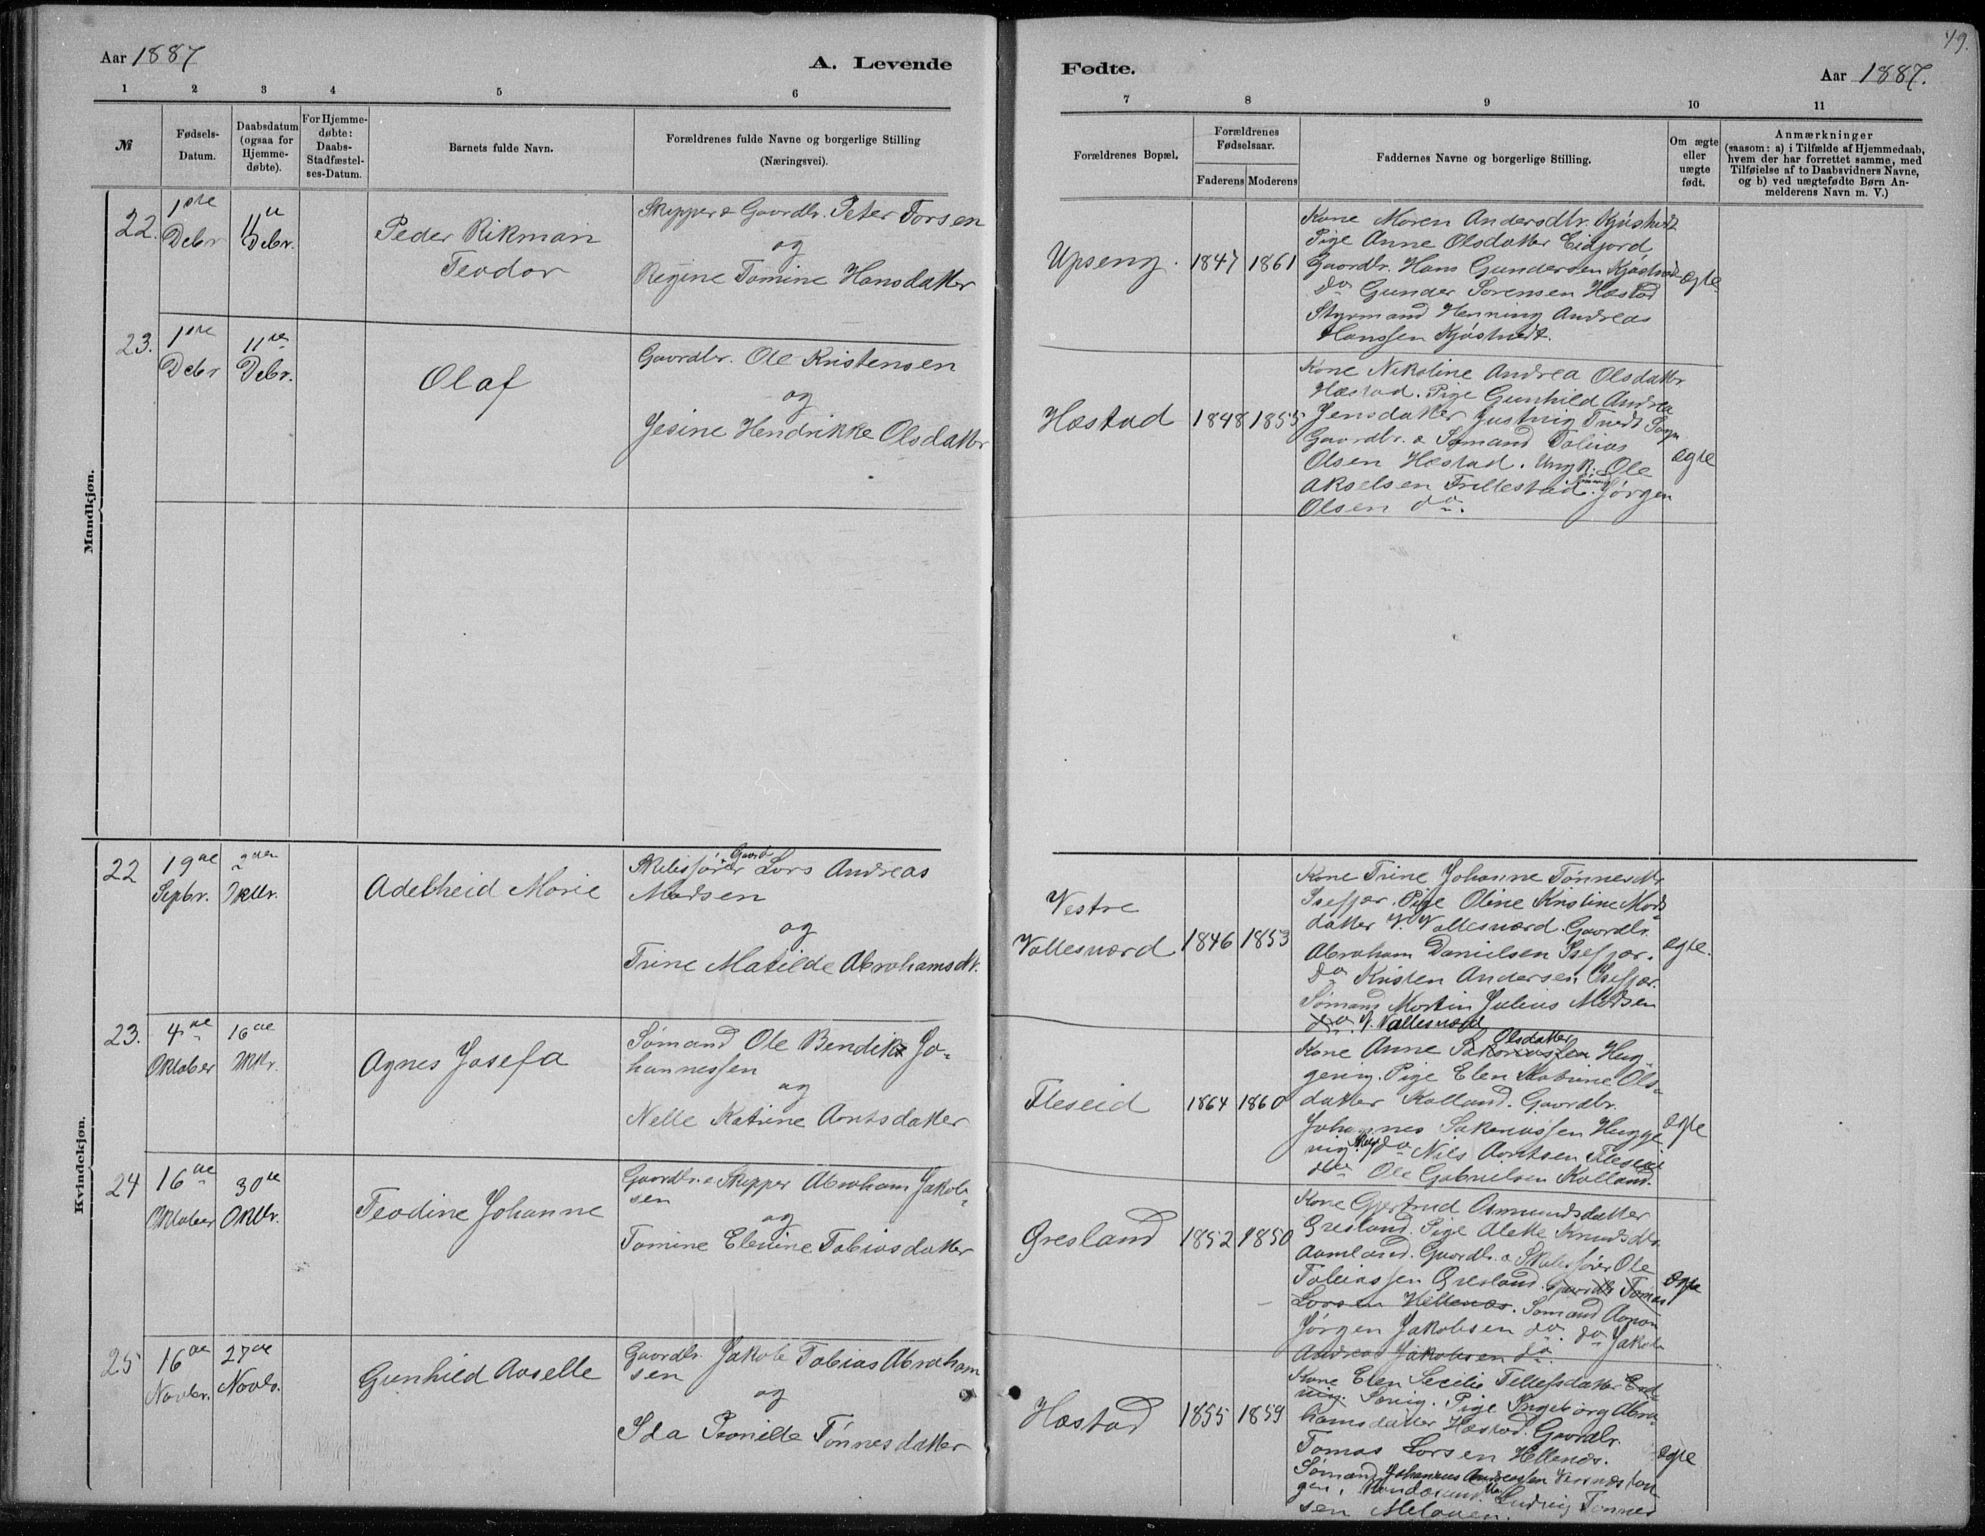 49.
Aar 1887
A. Levende
Fødte.
Aar 1887.
1 2 3 4 5 6
7 8 9 10 11
№
Fødsels-
Datum.
Daabsdatum
(ogsaa for
Hjemme-
døbte).
For Hjemme-
døbte:
Daabs-
Stadfæstel-
ses-Datum.
Barnets fulde Navn.
Forældrenes fulde Navne og borgerlige Stilling
(Næringsvei).
Forældrenes Bopæl.
Forældrenes
Fødselsaar.
Faderens Moderens
Faddernes Navne og borgerlige Stilling.
Om ægte
eller
uægte
født.
Anmærkninger
(saasom: a) i Tilfælde af Hjemmedaab,
hvem der har forrettet samme, med
Tilføielse af to Daabsvidners Navne,
og b) ved uægtefødte Børn An-
melderens Navn m. V.)
Mandkjøn.
22.
1ste
Debr
11te
Debr.
Peder Rikman
Teodor
Skipper & Gaardbr. Peter Torsen
og
Regine Tomine Hansdatter
Upseng.
1847 1861
Kone Maren Andersdtr. Kjøstvedt
Pige Anne Olsdatter Eidjord
Gaardbr. Hans Gundersen
do Gunder Sørensen Hæstad
Styrmand Henning Andreas
Hanssen Kjøstvedt.
ægte
23.
1ste
Debr
11te
Debr.
Olaf
Gaardbr. Ole Kristensen
og
Jesine Hendrikke Olsdatter
Hæstad
1848 1855
Kone Nikoline Andrea Olsdatter
Hæstad. Pige Gunhild Andrea
Jensdatter
Gaardbr. & Sømand Tobias
Olsen Hæstad. Ungk. Ole
Akselsen Frillestad. Sømand Jørgen
Olsen do.
ægte
Kvindekjøn.
22
19de
Sepbr.
2den
Oktbr.
Adelheid Marie
Gaard
Lars Andreas
Madsen
og
Trine Matilde Abrahamsdtr.
Vestre
Vallesværd
1846 1853
Kone Trine Johanne Tønnesdtr
Isefjær. Pige Oline Kristine Mads-
datter V. Vallesværd. Gaardbr.
Abraham Danielsen Isefjær.
do Kristen Andersen Isefjær.
Sømand Martin Julius Madsen
do. V. Vallesværd
ægte.
23.
4de
Oktober
16de
Oktbr.
Agnes Josefa
Sømand Ole Bendik Jo-
hannessen
og
Nelle Katrine Arntsdatter
Fleseid
1864 1860
Olsdatter
Kone Anne Sakariassen Hug-
genvig. Pige Elen Katrine Ols-
datter Kalland. Gaardbr.
Johannes Sakariassen Hugge
vig. do Nils Arntsen Fleseid
Ole Gabrielsen Kalland.
ægte
24
16de
Oktober
30te
Oktbr.
Teodine Johanne
Gaardbr. & Skipper Abraham Jakob-
sen
og
Tomine Elenine Tobiasdatter
Gresland
1852 1850
Kone Gjertrud Osmundsdatter
Gresland. Pige Alette Knudsdtr.
Aamland. Gaardbr. & Skibsfører Ole
Tobiassen Gresland. Gaardbr Tomas
Larsen Hellenæs. Sømand Aanon
Jørgen Jakobsen do. do Jakob
Andreas Jakobsen do.
ægte
25
16de
Novbr.
27de
Novbr.
Gunhild Aaselle
Gaardbr. Jakob Tobias Abraham
sen
og
Ida Pernille Tønnesdatter
Hæstad
1855 1859
Kone Elen Secilie Tellefsdatter
Pige Ingeborg Abra-
hamsdatter Hæstad. Gaardbr.
Tomas Larsen Hellenæs.
Sømand Johannes Andreassen
Ludvig Tønnes
sen
ægte